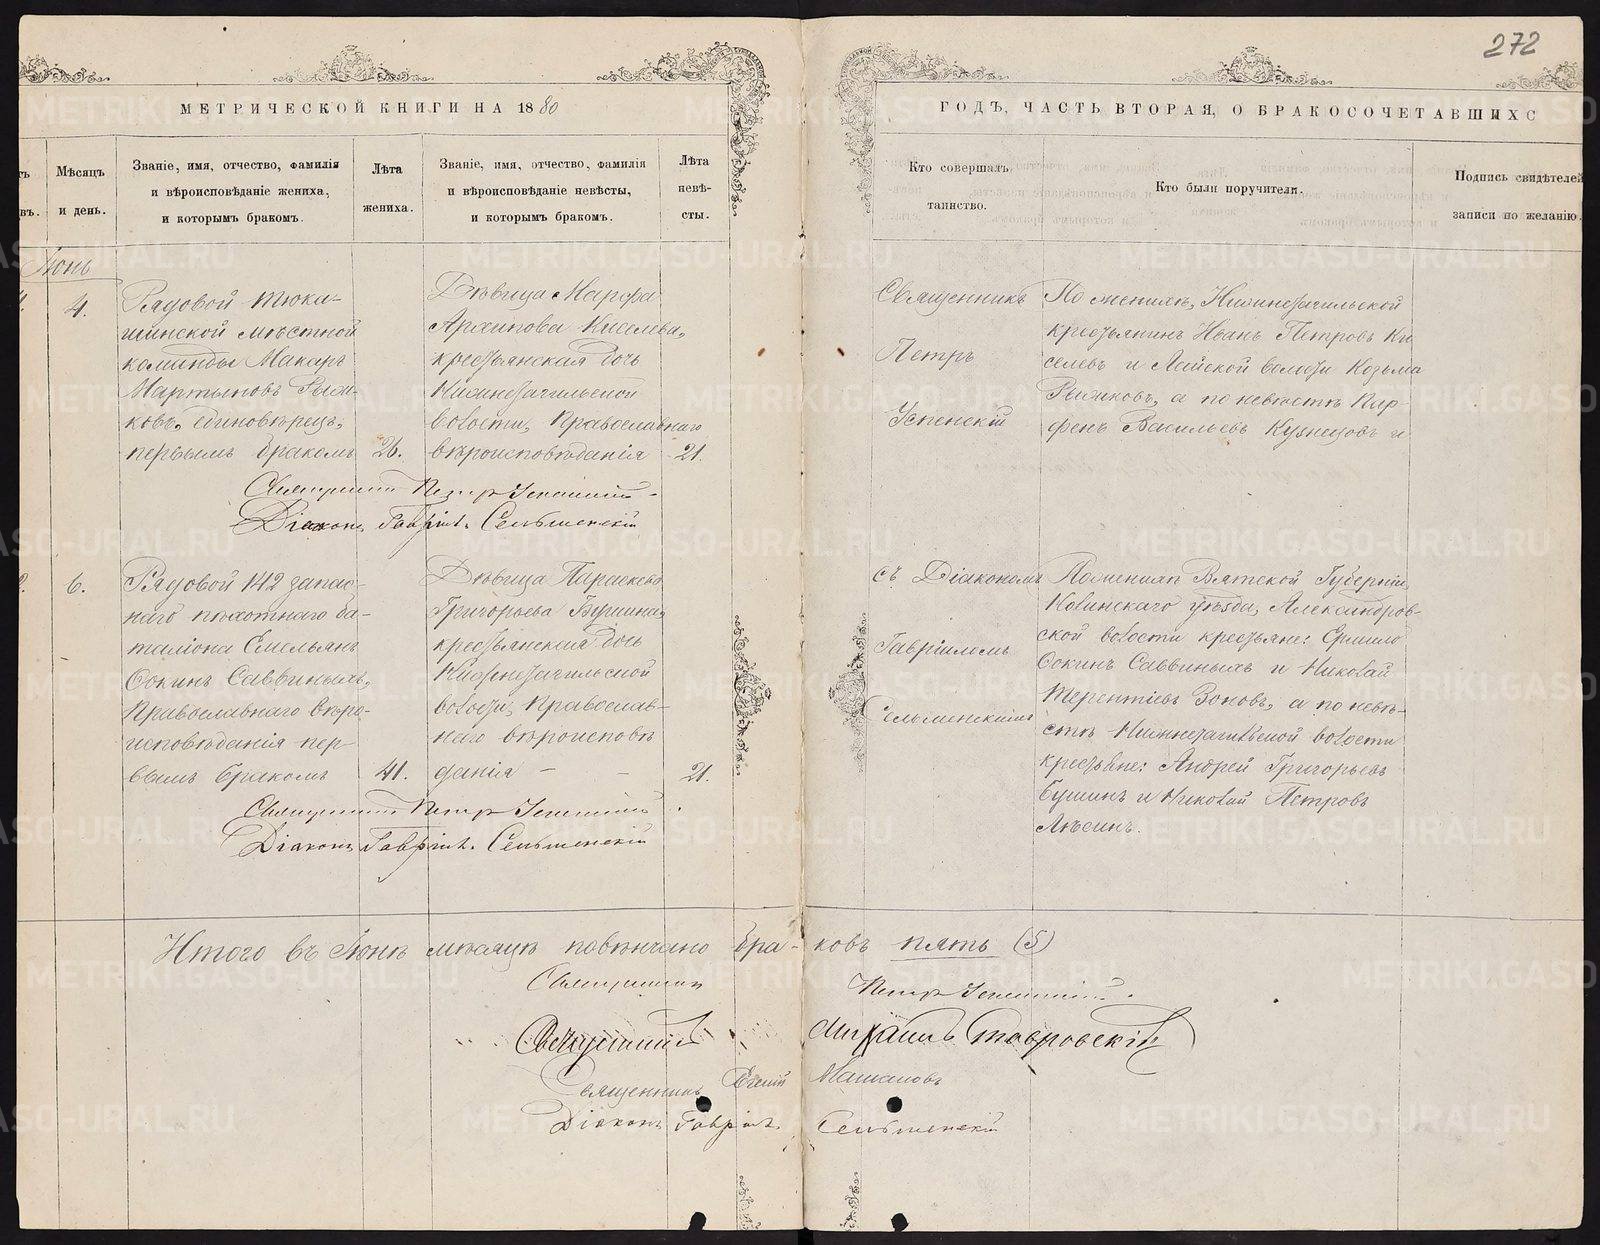 272
МЕТРИЧЕСКОЙ КНИГИ НА 1880
ГОДЪ, ЧАСТЬ ВТОРАЯ, О БРАКОСОЧЕТАВШИХС
Мѣсяцъ и день.
Званіе, имя, отчество, фамилія
и вѣроисповѣданіе жениха,
и которымъ бракомъ.
Лѣта
жениха.
Званіе, имя, отчество, фамилія
и вѣроисповѣданіе невѣсты,
и которымъ бракомъ.
Лѣта
невѣ-
сты.
Кто совершалъ
таинство.
Кто были поручители.
Подпись свидѣтелей
записи по желанію.
Іюнь
4.
Рядовой Тюка-
линской мѣстной
команды Макаръ
Мартыновъ Рыжи-
ковъ, единовѣрецъ,
первымъ бракомъ
26.
Дѣвица Марфа
Архипова Киселева,
крестьянская дочь
Нижнетагильской
волости, Православнаго
вѣроисповѣданія
21.
Священникъ
Петръ
Успенскій
По женихѣ, Нижнетагильской
крестьянинъ Иванъ Петровъ Ки
селевъ и Лайской волости Козьма
Рыжиковъ, а по невѣстѣ Пар-
фенъ Васильевъ Кузнецовъ и
Священникъ Петръ Успенскій
Діаконъ Гавріилъ Сельменскій
6.
Рядовой 142 запас-
наго пѣхотнаго ба-
таліона Емельянъ
Фокинъ Саввиныхъ,
Православнаго вѣро-
исповѣданія пер-
вымъ бракомъ
41.
Дѣвица Параскева
Григорьева Бушина,
крестьянская дочь
Нижнетагильской
волости, Православ-
наго вѣроисповѣ
данія - -
21.
съ Діакономъ
Гавріиломъ
Сельменскимъ
По женихѣ Вятской Губерніи
Нолинскаго уѣзда, Александров-
ской волости крестьяне: Ермило
Фокинъ Саввиныхъ и Николай
Терентіевъ Зоновъ, а по невѣ-
стѣ Нижнетагильской волости
крестьяне: Андрей Григорьевъ
Бушинъ и Николай Петровъ
Лѣсинъ.
Священникъ Петръ Успенскій
Діаконъ Гавріилъ Сельменскій
Итого въ Іюнѣ мѣсяцѣ повѣнчано бра-ковъ пять (5)
Священникъ Петръ Успенскій.
Священникъ Михаилъ Тавровскій
Священникъ Машановъ
Діаконъ Гавріилъ Сельменскій
METRIKI.GASO-URAL.RU